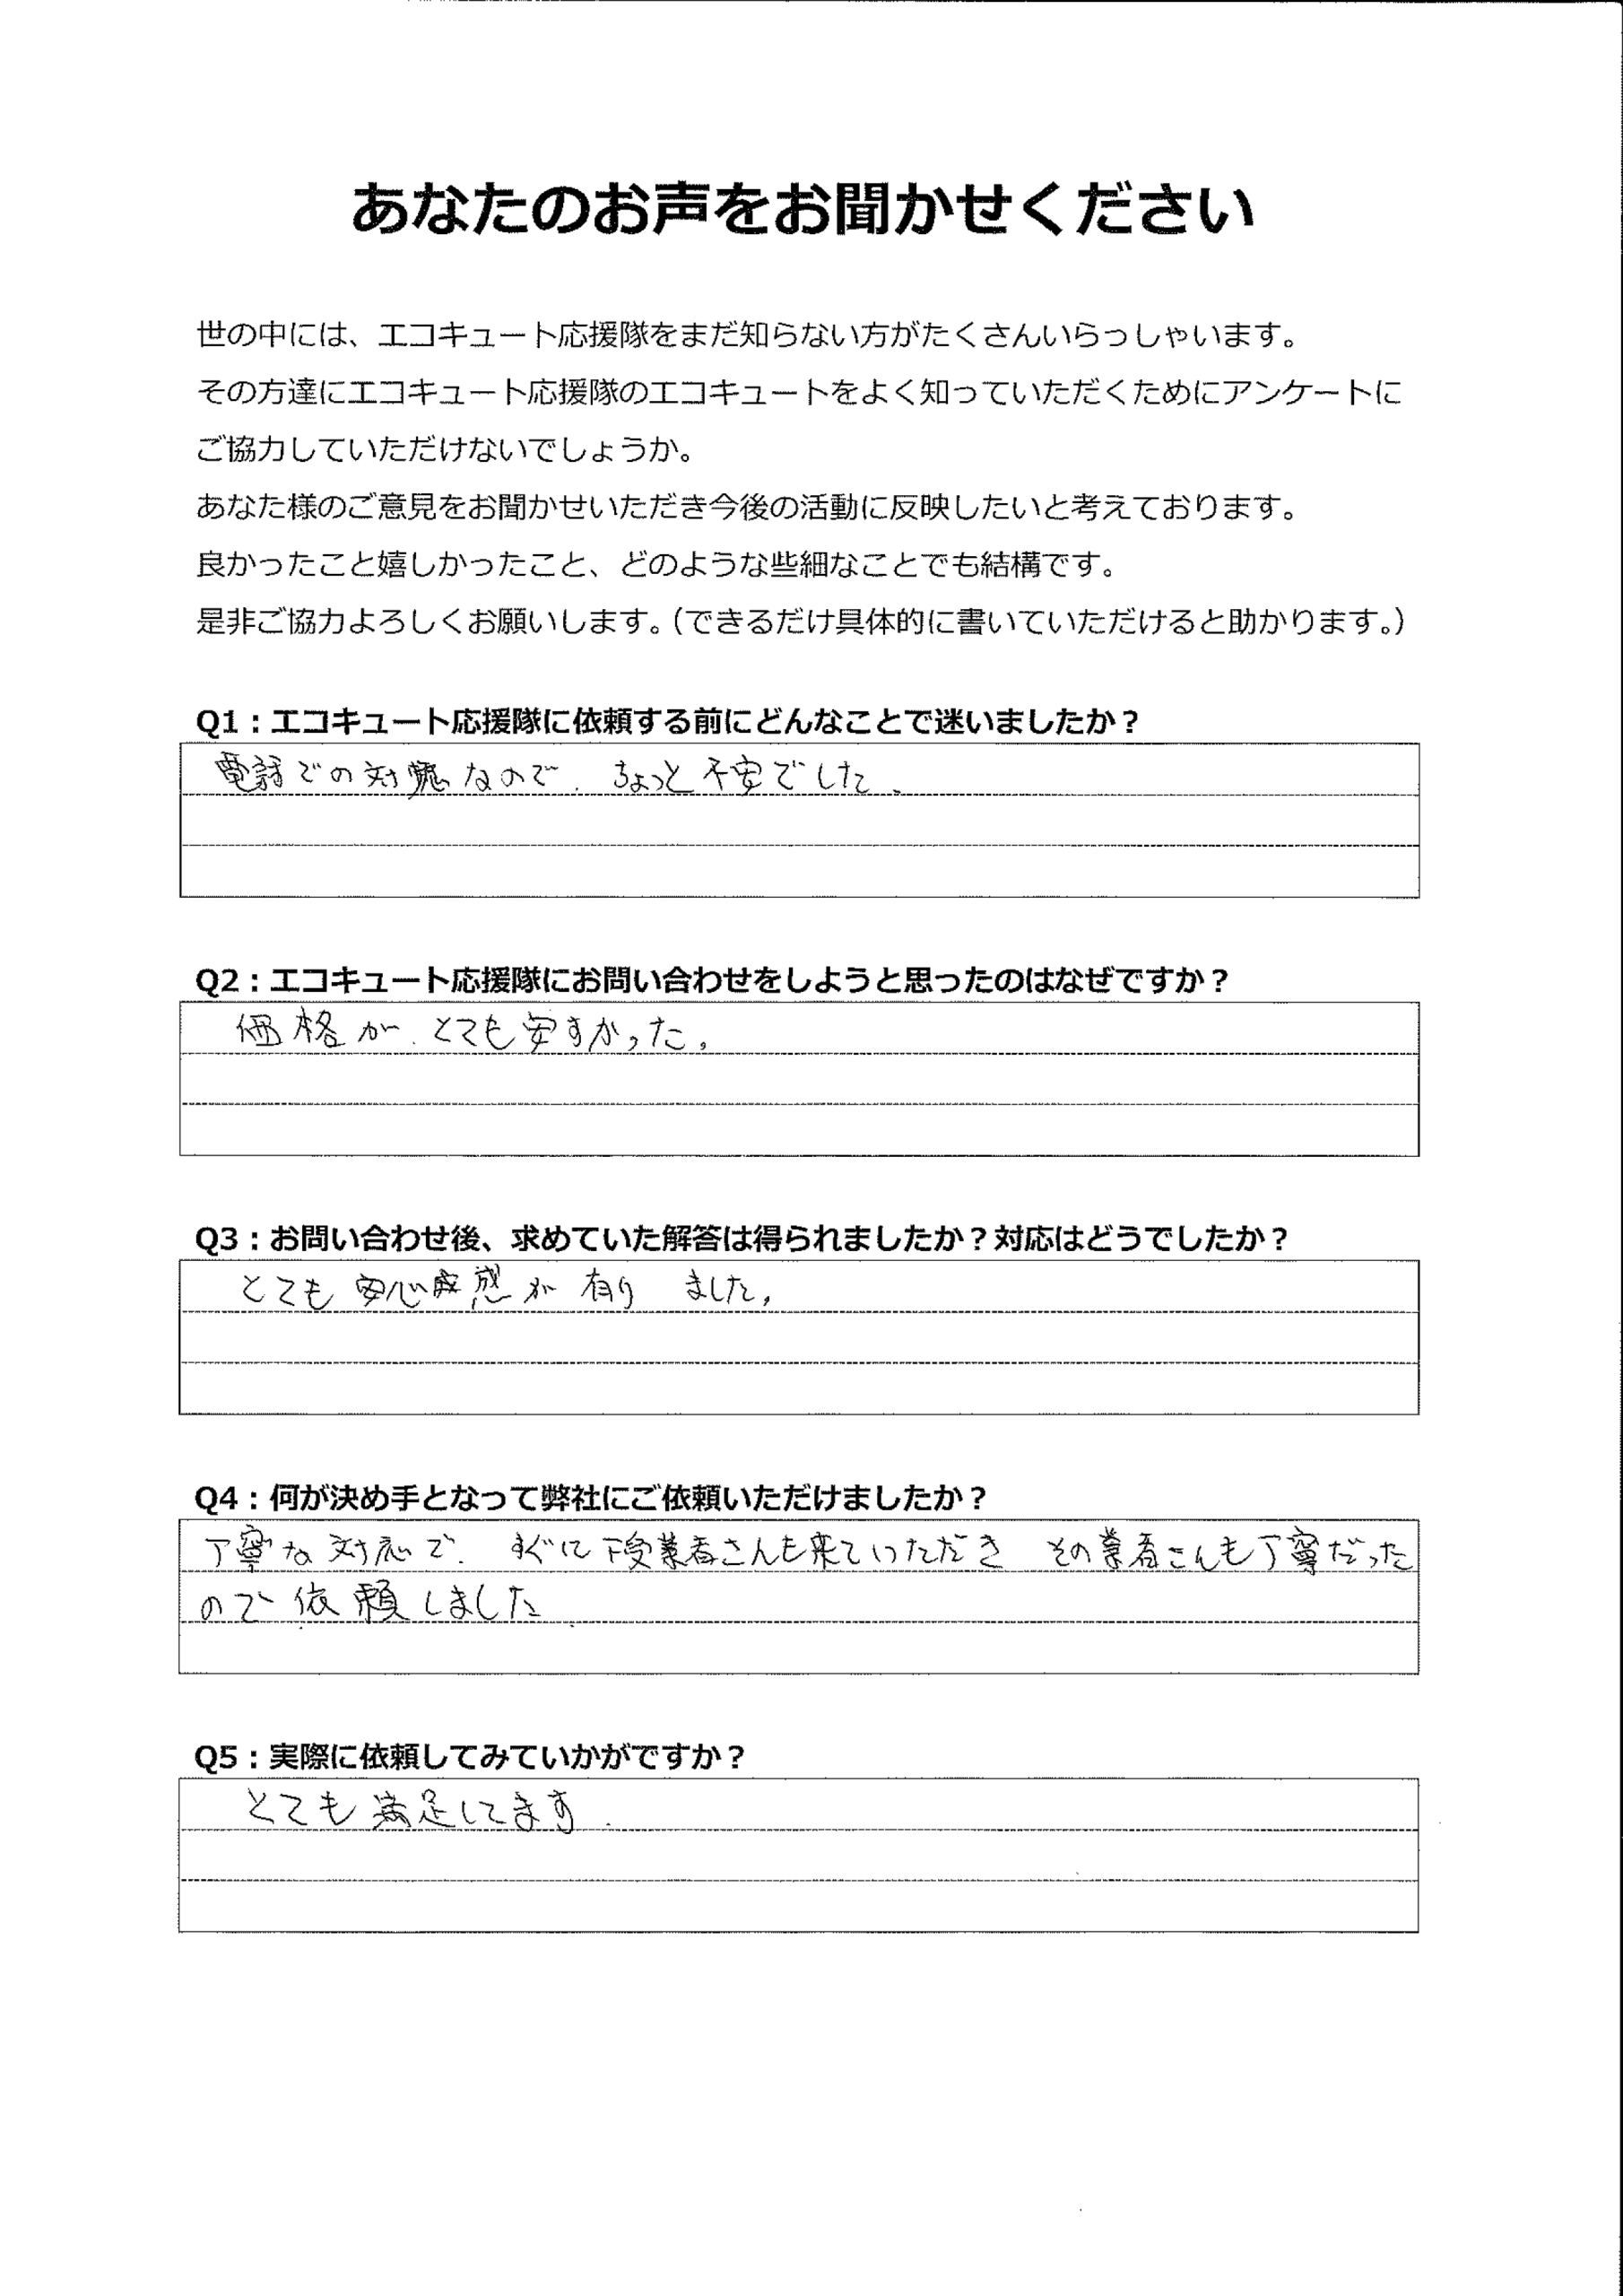 あなたのお声をお聞かせください
世の中には、エコキュート応援隊をまだ知らない方がたくさんいらっしゃいます。
その方達にエコキュート応援隊のエコキュートをよく知っていただくためにアンケートに
ご協力していただけないでしょうか。
あなた様のご意見をお聞かせいただき今後の活動に反映したいと考えております。
良かったこと嬉しかったこと、どのような些細なことでも結構です。
是非ご協力よろしくお願いします。（できるだけ具体的に書いていただけると助かります。）
Q1：エコキュート応援隊に依頼する前にどんなことで迷いましたか？
電話での対応なので、ちょっと不安でした、
Q2：エコキュート応援隊にお問い合わせをしようと思ったのはなぜですか？
価格が、とても安すかった。
Q3：お問い合わせ後、求めていた解答は得られましたか？対応はどうでしたか？
とても安心感が有りました。
Q4：何が決め手となって弊社にご依頼いただけましたか？
丁寧な対応で、すぐに下受業者さんも来ていただき その業者さんも丁寧だった
ので依頼しました
Q5：実際に依頼してみていかがですか？
とても満足してます．